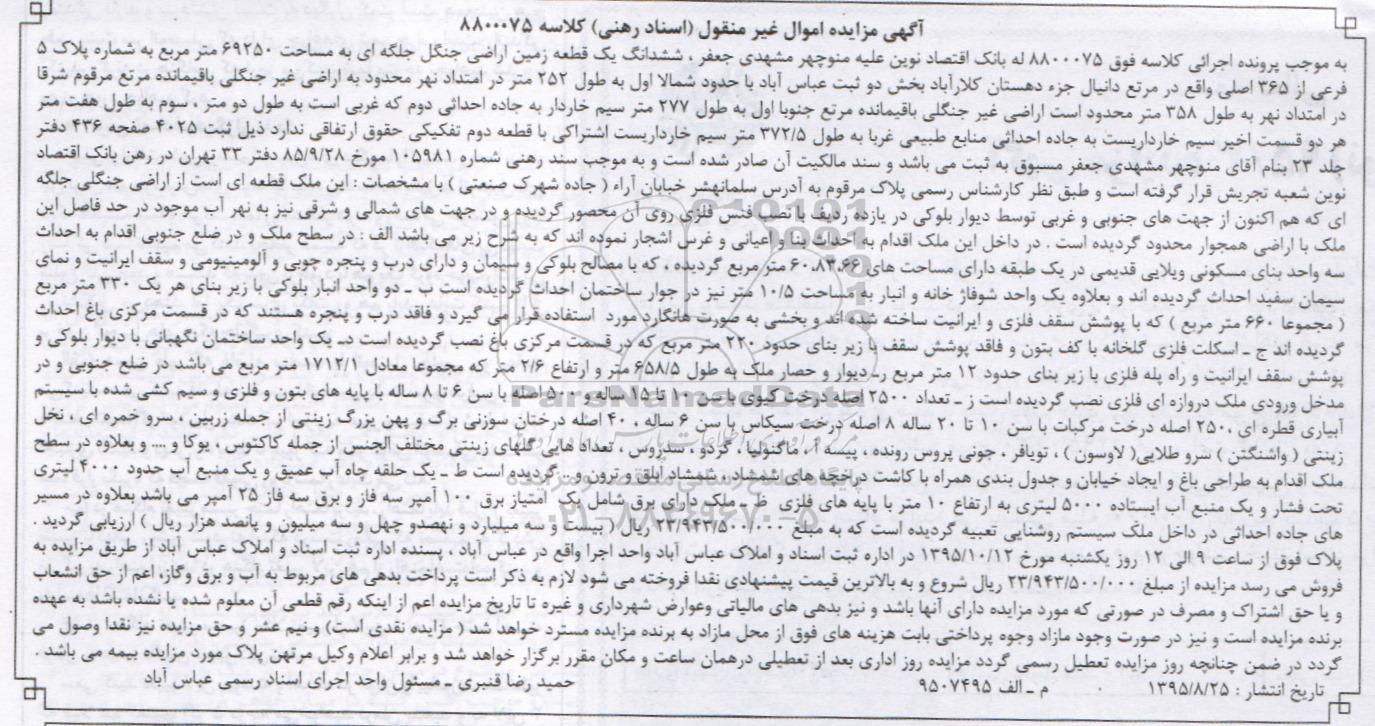 آگهی مزایده اموال غیر منقول (اسناد رهنی) کلاسه ۸۸۰۰۰۷۵
به موجب پرونده اجرائی کلاسه فوق ۸۸۰۰۰۷۵ له بانک اقتصاد نوین علیه منوچهر مشهدی جعفر ، ششدانگ یک قطعه زمین اراضی جنگل جلگه ای به مساحت ۶۹۲۵۰ متر مربع به شماره پلاک ۵
فرعی از ۳۶۵ اصلی واقع در مرتع دانیال جزء دهستان کلارآباد بخش دو ثبت عباس آباد با حدود شمالا اول به طول ۲۵۲ متر در امتداد نهر محدود به اراضی غیر جنگلی باقیمانده مرتع مرقوم شرقا
در امتداد نهر به طول ۳۵۸ متر محدود است اراضی غیر جنگلی باقیمانده مرتع جنوبا اول به طول ۲۷۷ متر سیم خاردار به جاده احداثی دوم که غربی است به طول دو متر ، سوم به طول هفت متر
هر دو قسمت اخیر سیم خارداریست به جاده احداثی منابع طبیعی غربا به طول ۳۷۲/۵ متر سیم خارداریست اشتراکی با قطعه دوم تفکیکی حقوق ارتفاقی ندارد ذیل ثبت ۴۰۲۵ صفحه ۴۳۶ دفتر
جلد ۲۳ بنام آقای منوچهر مشهدی جعفر مسبوق به ثبت می باشد و سند مالکیت آن صادر شده است و به موجب سند رهنی شماره ۱۰۵۹۸۱ مورخ ۸۵/۹/۲۸ دفتر ۳۳ تهران در رهن بانک اقتصاد
نوین شعبه تجریش قرار گرفته است و طبق نظر کارشناس رسمی پلاک مرقوم به آدرس سلمانهشر خیابان آراء ( جاده شهرک صنعتی ) با مشخصات : این ملک قطعه ای است از اراضی جنگلی جلگه
ای که هم اکنون از جهت های جنوبی و غربی توسط دیوار بلوکی در یازده ردیف با نصب فنس فلزی روی آن محصور گردیده و در جهت های شمالی و شرقی نیز به نهر آب موجود در حد فاصل این
ملک با اراضی همجوار محدود گردیده است . در داخل این ملک اقدام به احداث بنا و اعیانی و غرس اشجار نموده اند که به شرح زیر می باشد الف : در سطح ملک و در ضلع جنوبی اقدام به احداث
سه واحد بنای مسکونی ویلایی قدیمی در یک طبقه دارای مساحت های ۶۰،۸۳،۶۶ متر مربع گردیده ، که با مصالح بلوکی و سیمان و دارای درب و پنجره چوبی و آلومینیومی و سقف ایرانیت و نمای
سیمان سفید احداث گردیده اند و بعلاوه یک واحد شوفاژ خانه و انبار به مساحت ۱۰/۵ متر نیز در جوار ساختمان احداث گردیده است ب - دو واحد انبار بلوکی با زیر بنای هر یک ۳۳۰ متر مربع
( مجموعا ۶۶۰ متر مربع ) که با پوشش سقف فلزی و ایرانیت ساخته شده اند و بخشی به صورت هانگارد مورد استفاده قرار می گیرد و فاقد درب و پنجره هستند که در قسمت مرکزی باغ احداث
گردیده اند ج - اسکلت فلزی گلخانه با کف بتون و فاقد پوشش سقف با زیر بنای حدود ۲۲۰ متر مربع که در قسمت مرکزی باغ نصب گردیده است د- یک واحد ساختمان نگهبانی با دیوار بلوکی و
پوشش سقف ایرانیت و راه پله فلزی با زیر بنای حدود ۱۲ متر مربع ر- دیوار و حصار ملک به طول ۶۵۸/۵ متر و ارتفاع ۲/۶ متر که مجموعا معادل ۱۷۱۲/۱ متر مربع می باشد در ضلع جنوبی و در
مدخل ورودی ملک دروازه ای فلزی نصب گردیده است ز - تعداد ۲۵۰۰ اصله درخت کیوی با سن ۱۰ تا ۱۵ ساله و ۵۰۰ اصله با سن ۶ تا ۸ ساله با پایه های بتون و فلزی و سیم کشی شده با سیستم
آبیاری قطره ای ،۲۵۰ اصله درخت مرکبات با سن ۱۰ تا ۲۰ ساله ۸ اصله درخت سیکاس با سن ۶ ساله ، ۴۰ اصله درختان سوزنی برگ و پهن یزرگ زینتی از جمله زربین ، سرو خمره ای ، نخل
زینتی ( واشنگتن ) سرو طلایی( لاوسون ) ، تویافر ، جونی پروس رونده ، پیسه آ ، ماگنولیا ، گردو ، سدروس ، تعداد هایی گلهای زینتی مختلف الجنس از جمله کاکتوس ، یوکا و .... و بعلاوه در سطح
ملک اقدام به طراحی باغ و ایجاد خیابان و جدول بندی همراه با کاشت درختچه های شمشاد ، شمشاد ابلق و ترون و... گردیده است ط - یک حلقه چاه آب عمیق و یک منبع آب حدود ۴۰۰۰ لیتری
تحت فشار و یک منبع آب ایستاده ۵۰۰۰ لیتری به ارتفاع ۱۰ متر با پایه های فلزی ظ- ملک دارای برق شامل یک امتیاز برق ۱۰۰ آمپر سه فاز و برق سه فاز ۲۵ آمپر می باشد بعلاوه در مسیر
های جاده احداثی در داخل ملک سیستم روشنایی تعبیه گردیده است که به مبلغ ۲۳/۹۴۳/۵۰۰/۰۰۰ ریال ( بیست و سه میلیارد و نهصدو چهل و سه میلیون و پانصد هزار ریال ) ارزیابی گردید .
پلاک فوق از ساعت ۹ الی ۱۲ روز یکشنبه مورخ ۱۳۹۵/۱۰/۱۲ در اداره ثبت اسناد و املاک عباس آباد واحد اجرا واقع در عباس آباد ، پسنده اداره ثبت اسناد و املاک عباس آباد از طریق مزایده به
فروش می رسد مزایده از مبلغ ۲۳/۹۴۳/۵۰۰/۰۰۰ ریال شروع و به بالاترین قیمت پیشنهادی نقدا فروخته می شود لازم به ذکر است پرداخت بدهی های مربوط به آب و برق وگاز، اعم از حق انشعاب
و یا حق اشتراک و مصرف در صورتی که مورد مزایده دارای آنها باشد و نیز بدهی های مالیاتی وعوارض شهرداری و غیره تا تاریخ مزایده اعم از اینکه رقم قطعی آن معلوم شده یا نشده باشد به عهده
برنده مزایده است و نیز در صورت وجود مازاد وجوه پرداختی بابت هزینه های فوق از محل مازاد به برنده مزایده مسترد خواهد شد ( مزایده نقدی است) و نیم عشر و حق مزایده نیز نقدا وصول می
گردد در ضمن چنانچه روز مزایده تعطیل رسمی گردد مزایده روز اداری بعد از تعطیلی درهمان ساعت و مکان مقرر برگزار خواهد شد و برابر اعلام وکیل مرتهن پلاک مورد مزایده بیمه می باشد .
تاریخ انتشار : ۱۳۹۵/۸/۲۵ م - الف ۹۵۰۷۴۹۵ حمید رضا قنبری - مسئول واحد اجرای اسناد رسمی عباس آباد
ParsNamadData
۰۲۱-۸۸۳۴۹۶۷۰-۵